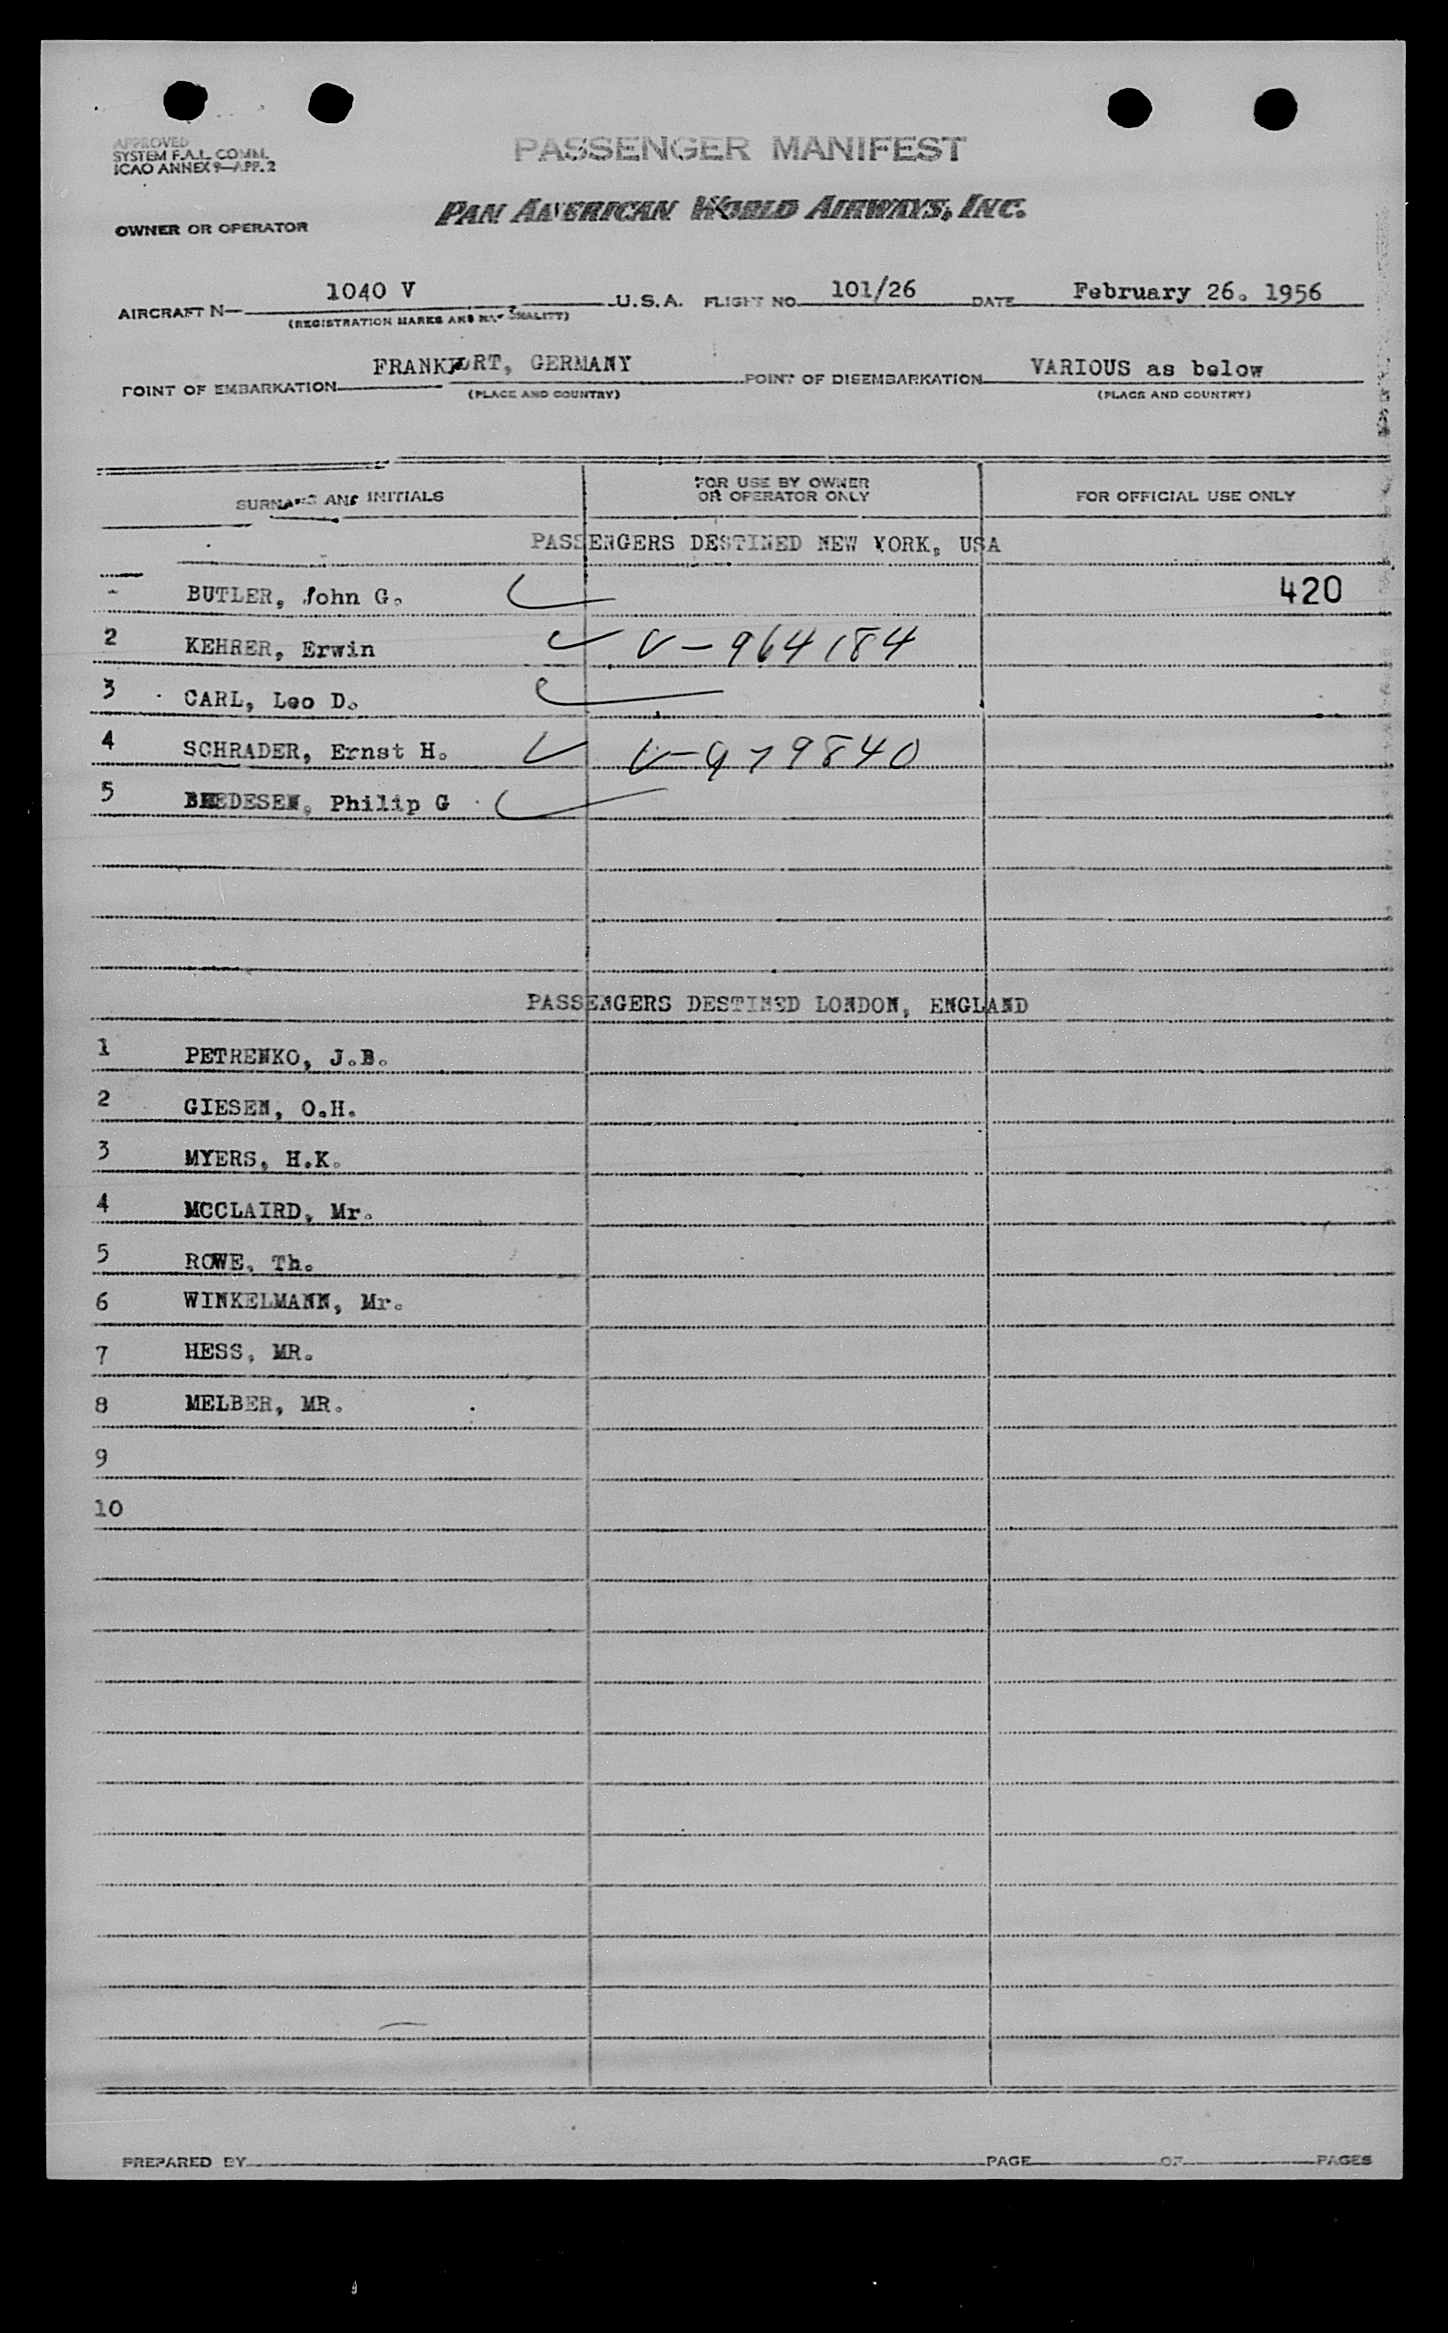 APPROVED
SYSTEM F.A.L. COMM.
ICAO ANNEX 9—APP. 2
PASSENGER MANIFEST
PAN AMERICAN WORLD AIRWAYS, INC.
OWNER OR OPERATOR
AIRCRAFT N— 1040 V U.S.A. FLIGHT NO. 101/26 DATE February 26. 1956
(REGISTRATION MARKS AND NATIONALITY)
POINT OF EMBARKATION FRANKFURT, GERMANY POINT OF DISEMBARKATION VARIOUS as below
(PLACE AND COUNTRY) (PLACE AND COUNTRY)
SURNAME AND INITIALS FOR USE BY OWNER OR OPERATOR ONLY FOR OFFICIAL USE ONLY
PASSENGERS DESTINED NEW YORK, USA
BUTLER, John G. 420
2 KEHRER, Erwin V-964184
3 CARL, Leo D.
4 SCHRADER, Ernst H. V-979840
5 Philip G
PASSENGERS DESTINED LONDON, ENGLAND
1 PETRENKO, J.B.
2 GIESEN, O.H.
3 MYERS, H.K.
4 MCCLAIRD, Mr.
5 ROWE, Th.
6 WINKELMANN, Mr.
7 HESS, MR.
8 MELBER, MR.
9
10
PREPARED BY PAGE OF PAGES